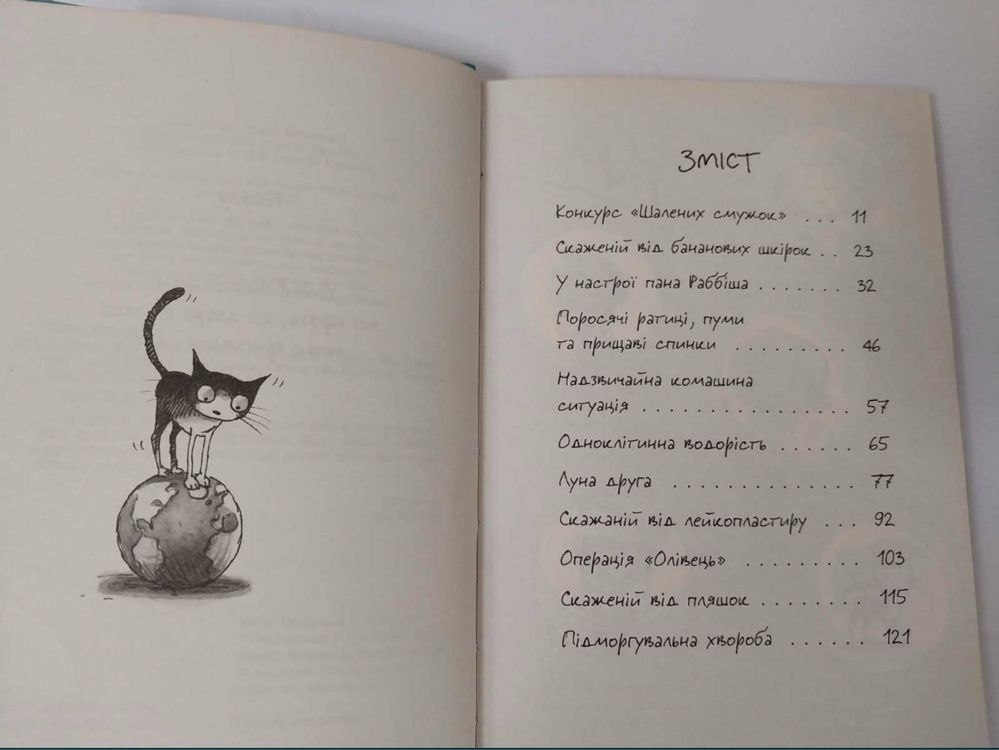 ЗМІСТ
Конкурс «Шалених смужок» . . . 11
Скаженій від бананових шкірок . . 23
У настрої пана Раббіша . . . . . . . 32
Поросячі ратиці, пуми
та прищаві спинки . . . . . . . . . 46
Надзвичайна комашина
ситуація . . . . . . . . . . . . . . . . . 57
Одноклітинна водорість . . . . . . 65
Луна друга . . . . . . . . . . . . . . 77
Скажаній від лейкопластиру . . . 92
Операція «Олівець» . . . . . . . . . 103
Скаженій від пляшок . . . . . . . . 115
Підморгувальна хвороба . . . . . . 121